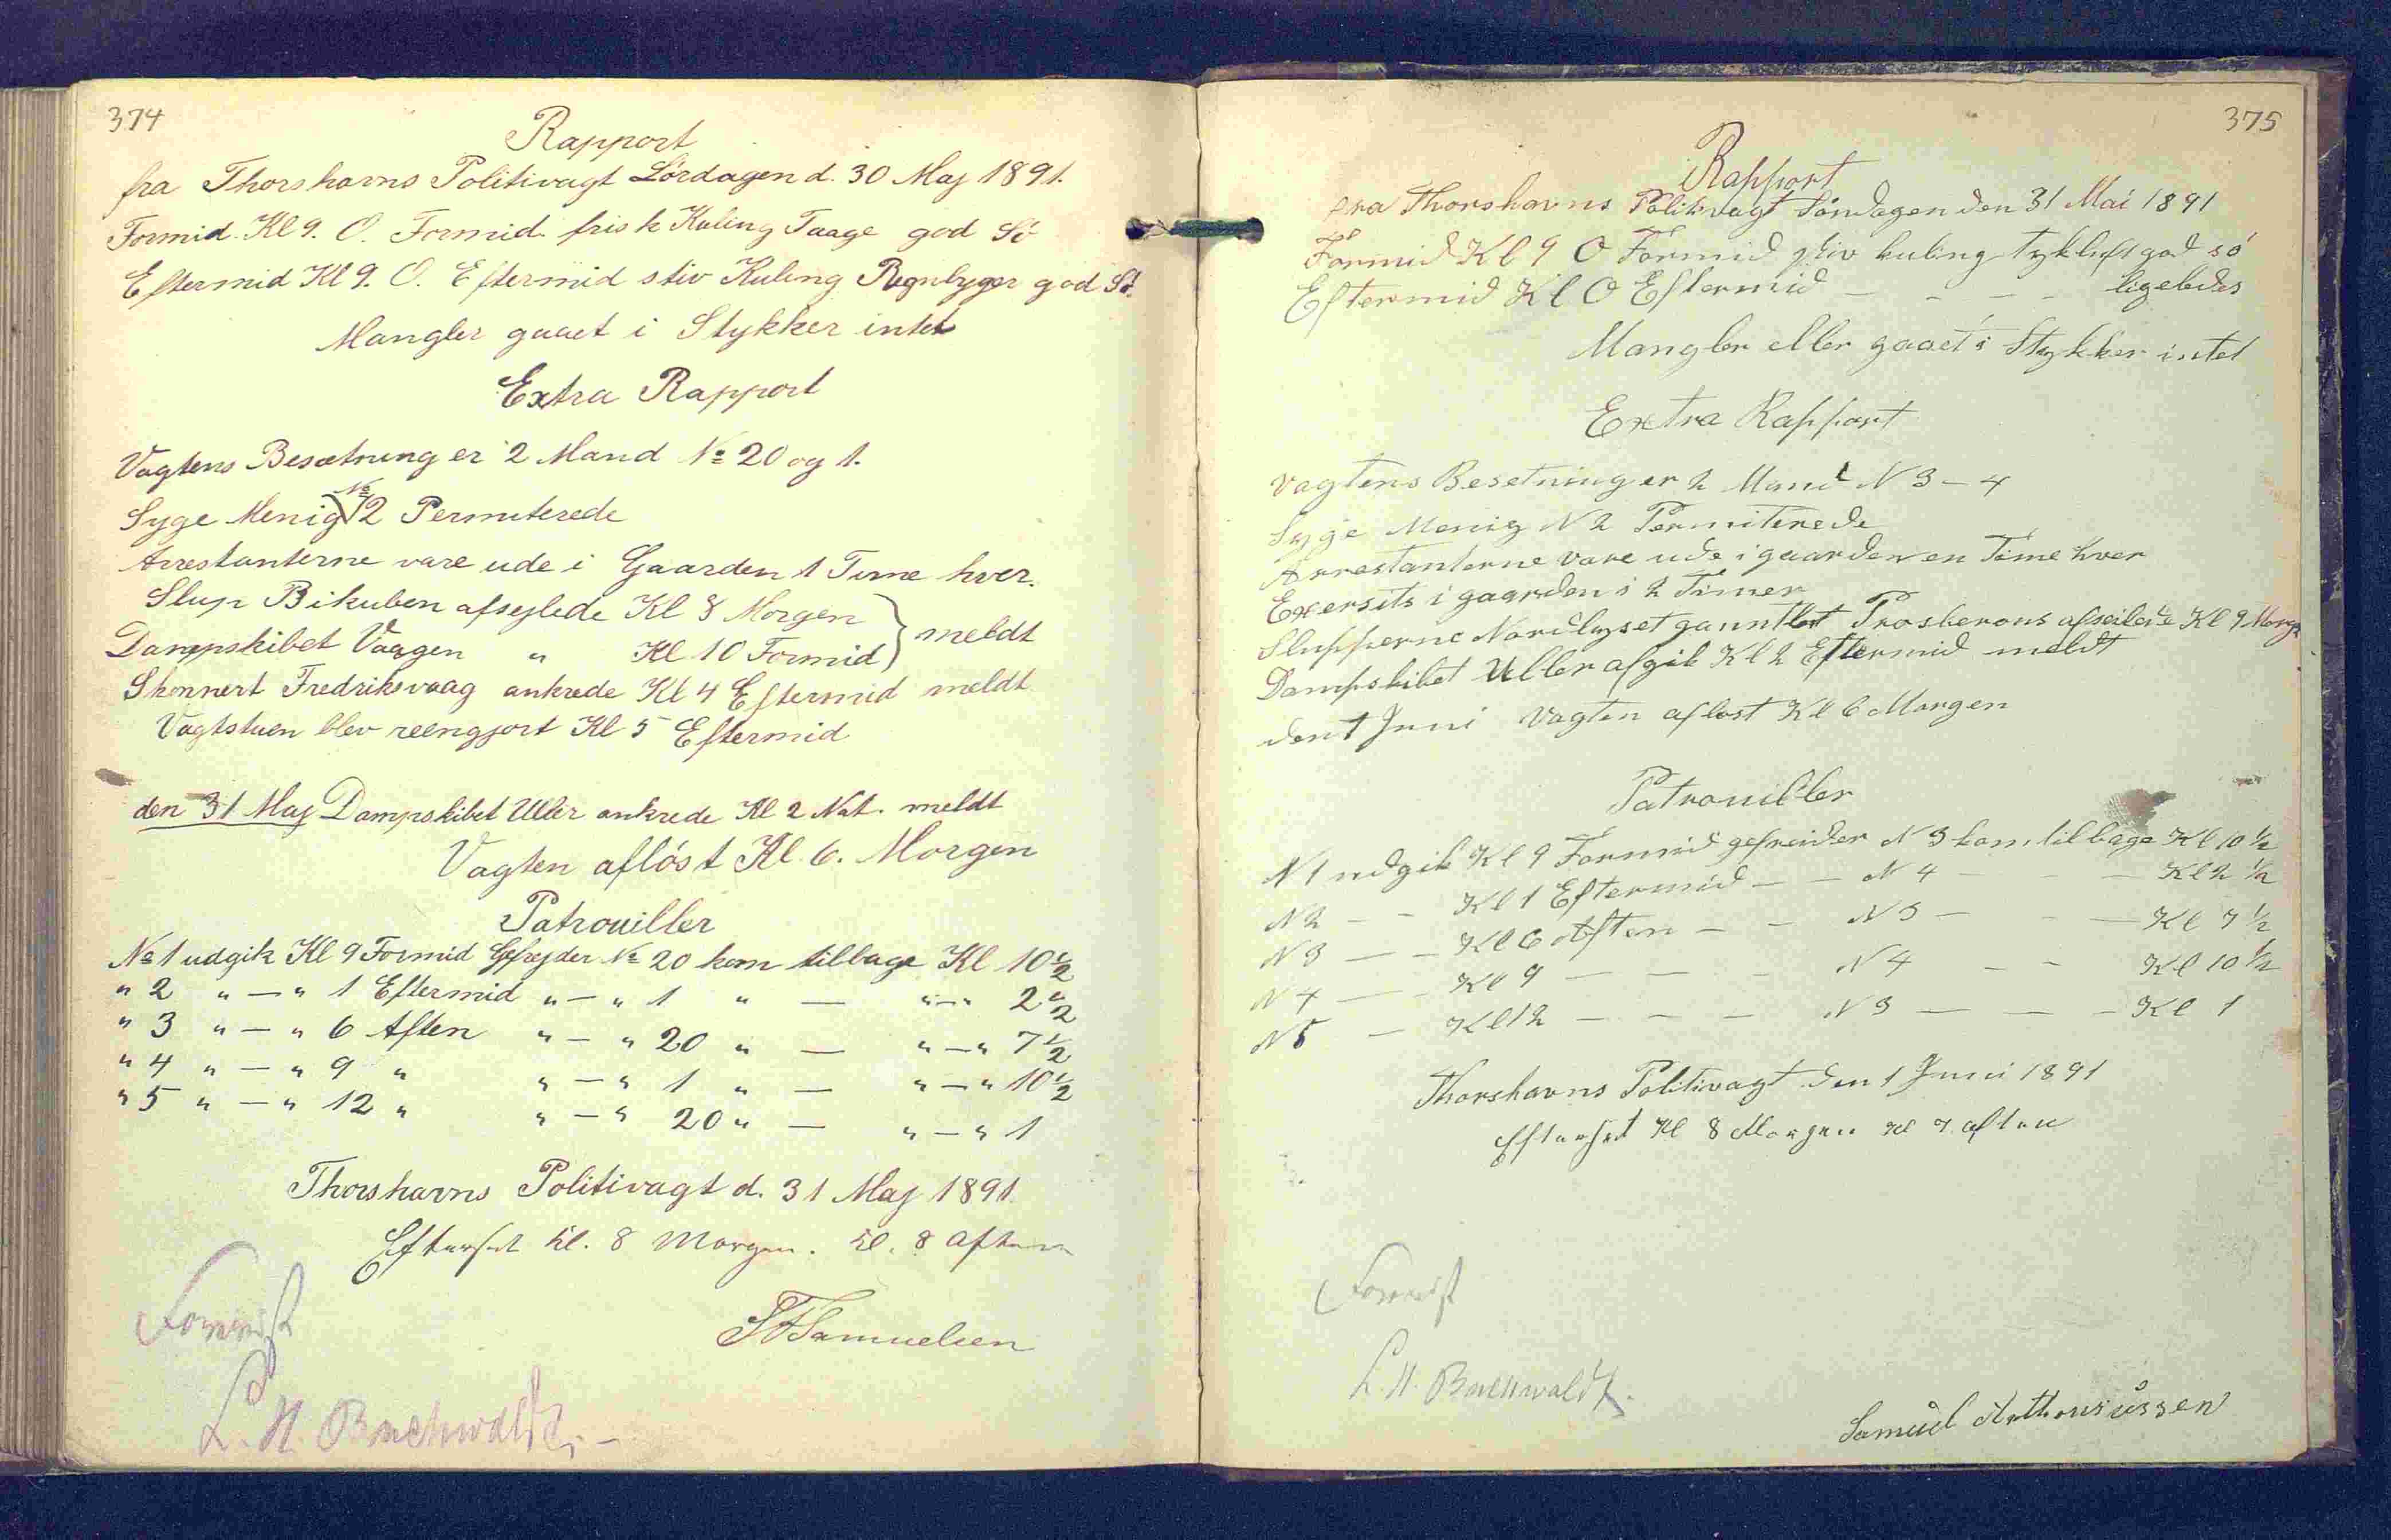 374
Rapport
fra Thorshavns Politivagt Lördagen d. 30 Maj 1891.
Formid. Kl 9. O. Formid. frisk Kuling Taage god Sö
Eftermid Kl 9. O. Eftermid stiv Kuling Regnbyger god Sö.
Mangler gaaet i Stykker intet
Extra Rapport
Vagtens Besætning er 2 Mand № 20 og 1.
Syge Menig № 2 Permiterede
Arrestanterne vare ude i Gaarden 1 Time hver.
Slup Bikuben afsejlede Kl 8 Morgen
Dampskibet Vaagen " Kl 10 Formid } meldt
Skonnert Fredriksvaag ankrede Kl 4 Eftermid meldt
Vagtstuen blev reengjort Kl 5 Eftermid
den 31 Maj Dampskibet Uller ankrede Kl 2 Nat. meldt
Vagten aflöst Kl. 6. Morgen
Patrouiller
№ 1 udgik Kl 9 Formid Gefrejder № 20 kom tilbage Kl 10 1/2
" 2 " — " 1 Eftermid " — " 1 " — " — " 2 1/2
" 3 " — " 6 Aften " — " 20 " — " — " 7 1/2
" 4 " — " 9 " " — " 1 " — " — " 10 1/2
" 5 " — " 12 " " — " 20 " — " — " 1
Thorshavns Politivagt d. 31 Maj 1891.
Efterset Kl. 8 Morgen. Kl. 8 Aften
Forevist
S Samuelsen
L. H. Buchwaldt.
375
Rapport
fra Thorshavns Politivagt Söndagen den 31 Mai 1891
Formid Kl 9 O Formid stiv kuling tykluft god sö
Eftermid Kl O Eftermid — — — — ligeledes
Mangler eller gaaet i Stykker intet
Extra Rapport
Vagtens Besetning er 2 Mand N 3 – 4
Syge Menig N 2 Permiterede
Arrestanterne vare ude i gaarden en Time hver
Exersits i gaarden i 2 Timer
Slupperne Nordlyset Prosberous afseilede Kl 9 Morg
Dampskibet Uller afgik Kl 2 Eftermid meldt
den 1 Juni Vagten aflöst Kl 6 Morgen
Patrouiller
N 1 udgik Kl 9 Formid gefreider N 3 kom tilbage Kl 10 1/2
N 2 — — Kl 1 Eftermid — — N 4 — — — Kl 2 1/2
N 3 — — Kl 6 Aften — — N 3 — — — Kl 7 1/2
N 4 — — Kl 9 — — — N 4 — — Kl 10 1/2
N 5 — Kl 12 — — — N 3 — — — Kl 1
Thorshavns Politivagt den 1 Juni 1891
Efterset Kl 8 Morgen Kl 7 aften
Forevist
L. H. Buchwaldt.
Samuel